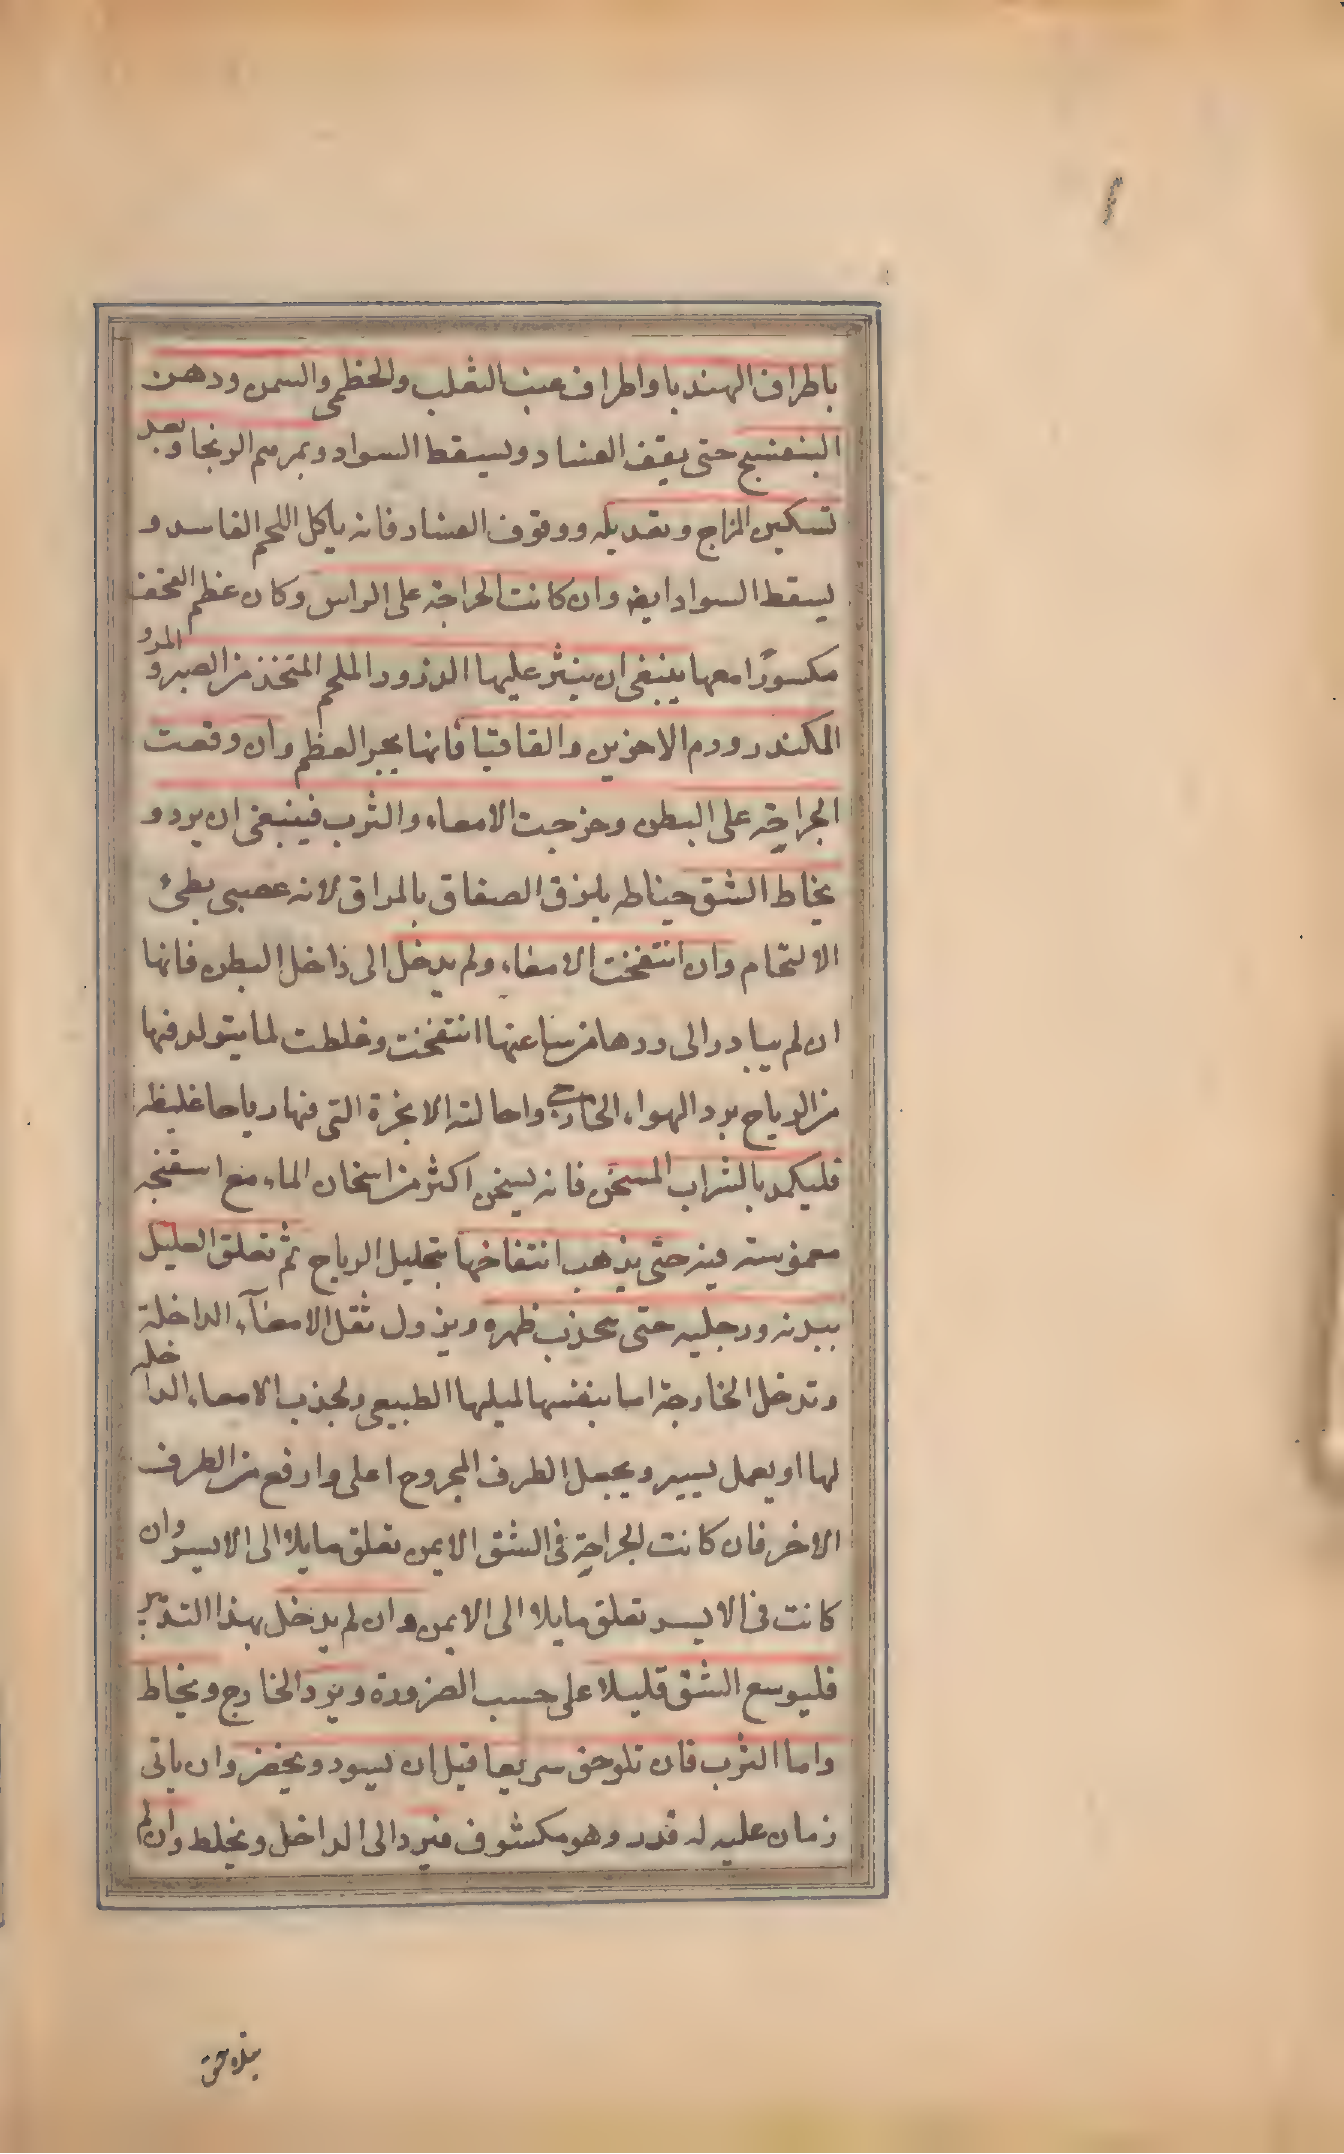 باطراف الهندبا واطراف عنب الثعلب والخطمى والسمن ودهن
البنفسج حتى يقف الفساد ويسقط السواد وبمرهم الزنجار وبعد
تسكين المزاج وتعديله ووقوف الفساد فانه ياكل اللحم الفاسد و
يسقط السواد ايض وان كانت الجراحة على الراس وكان عظم القحف
مكسورًا معها ينبغى ان ينثر عليها الذرور الملحم المتخذ من الصبر والمر و
الكندر ودم الاخوين والقاقيا فانها يجبر العظم وان وقعت
الجراحة على البطن وخرجت الامعاء والثرب فينبغى ان يرد و
يخاط الشق خياطه يلزق الصفاق بالمراق لانه عصبى بطىء
الالتحام وان انتفخت الامعاء ولم يدخل الى داخل البطن فانها
ان لم يبادر الى ردها من ساعتها انتفخت وغلظت لما يتولد فيها
من الرياح برد الهواء الخارجى واحالته الابخرة التى فيها رياحا غليظه
فليكمد بالشراب المسخن فانه يسخن اكثر من اسخان الماء مع اسفنجه
مغموسته فيه حتى يذهب انتفاخها بتحليل الرياح ثم تعلق العليل
بيدنه ورجليه حتى يحدب ظهره ويزول ثقل الامعآء الداخلة
وتدخل الخارجة اما بنفسها لميلها الطبيعى ولجذب الامعاء الداخله
لها او بعمل يسير ويجعل الطرف المجروح اعلى وارفع من الطرف
الاخر فان كانت الجراحة فى الشق الايمن تعلق مايلا الى الايسر وان
كانت فى الايسر تعلق مايلا الى الايمن وان لم يدخل بهذا التدبير
فليوسع الشق قليلا على حسب الضرورة ويرد الخارج ويخاط
واما الثرب فان تلوحق سريعا قبل ان يسود ويخضر وان ياتى
زمان عليه له قدر وهو مكشوف فيرد الى الداخل ويخلط وان لم
يتلاحق